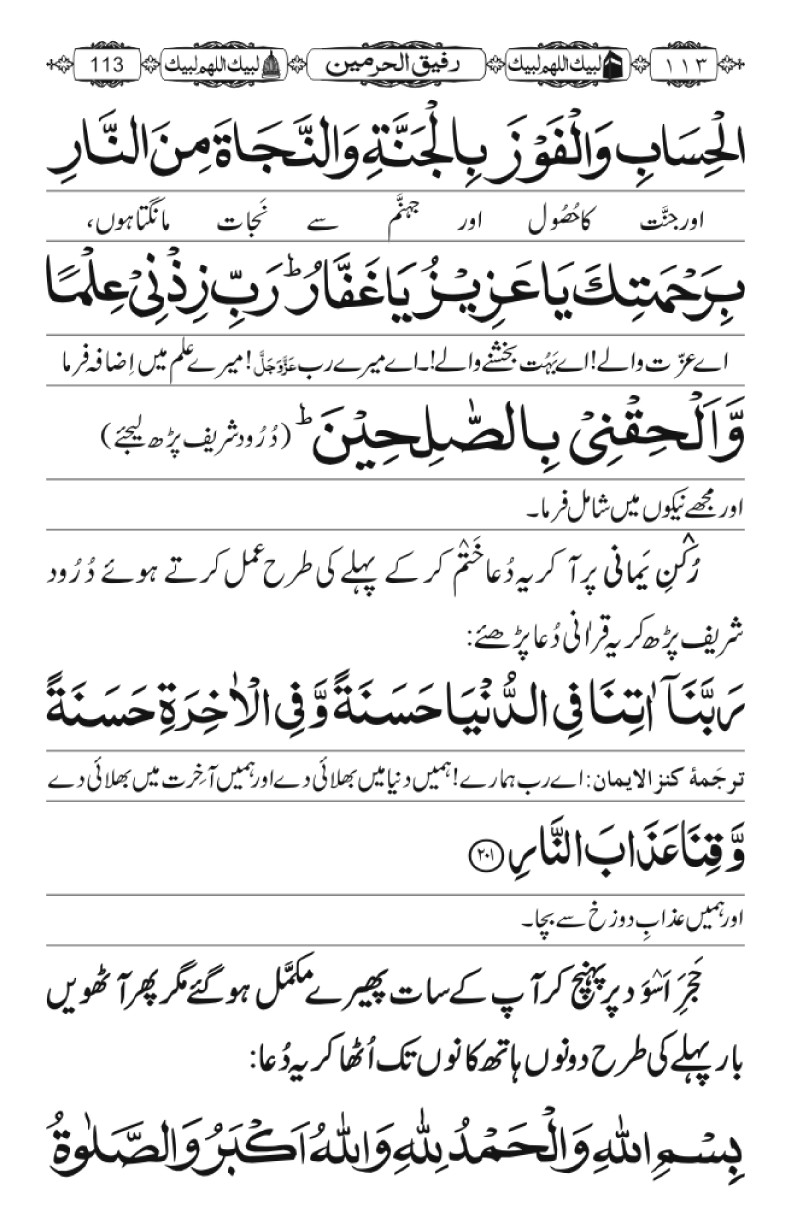 ١١٣ لبیک اللھم لبیک رفیق الحرمین لبیک اللھم لبیک 113
الْحِسَابِ وَالْفَوْزَ بِالْجَنَّةِ وَالنَّجَاةَ مِنَ النَّارِ
اور جنَّت کا حُصُول اور جہنَّم سے نَجات مانگتا ہوں،
بِرَحْمَتِكَ يَا عَزِيْزُ يَا غَفَّارُ ؕ رَبِّ زِدْنِیْ عِلْمًا
اے عزّت والے! اے بَہُت بخشنے والے!۔اے میرے رب عَزَّوَجَلَّ! میرے علم میں اِضافہ فرما
وَّاَلْحِقْنِیْ بِالصّٰلِحِيْنَ ؕ (دُرُود شریف پڑھ لیجئے)
اور مجھے نیکوں میں شامل فرما۔
رُکْنِ یَمانی پر آ کر یہ دُعا خَتْم کر کے پہلے کی طرح عمل کرتے ہوئے دُرُود
شریف پڑھ کر یہ قراٰنی دُعا پڑھئے:
رَبَّنَاۤ اٰتِنَا فِی الدُّنْیَا حَسَنَةً وَّ فِی الْاٰخِرَةِ حَسَنَةً
ترجَمۂ کنز الایمان: اے رب ہمارے! ہمیں دنیا میں بھلائی دے اور ہمیں آخرت میں بھلائی دے
وَّ قِنَا عَذَابَ النَّارِ ﴿۲۰۱﴾
اور ہمیں عذابِ دوزخ سے بچا۔
حَجَرِ اَسْوَد پر پہنچ کر آپ کے سات پھیرے مکمَّل ہو گئے مگر پھر آٹھویں
بار پہلے کی طرح دونوں ہاتھ کانوں تک اُٹھا کر یہ دُعا:
بِسْمِ اللهِ وَالْحَمْدُ لِلّٰهِ وَاللهُ اَكْبَرُ وَالصَّلٰوةُ